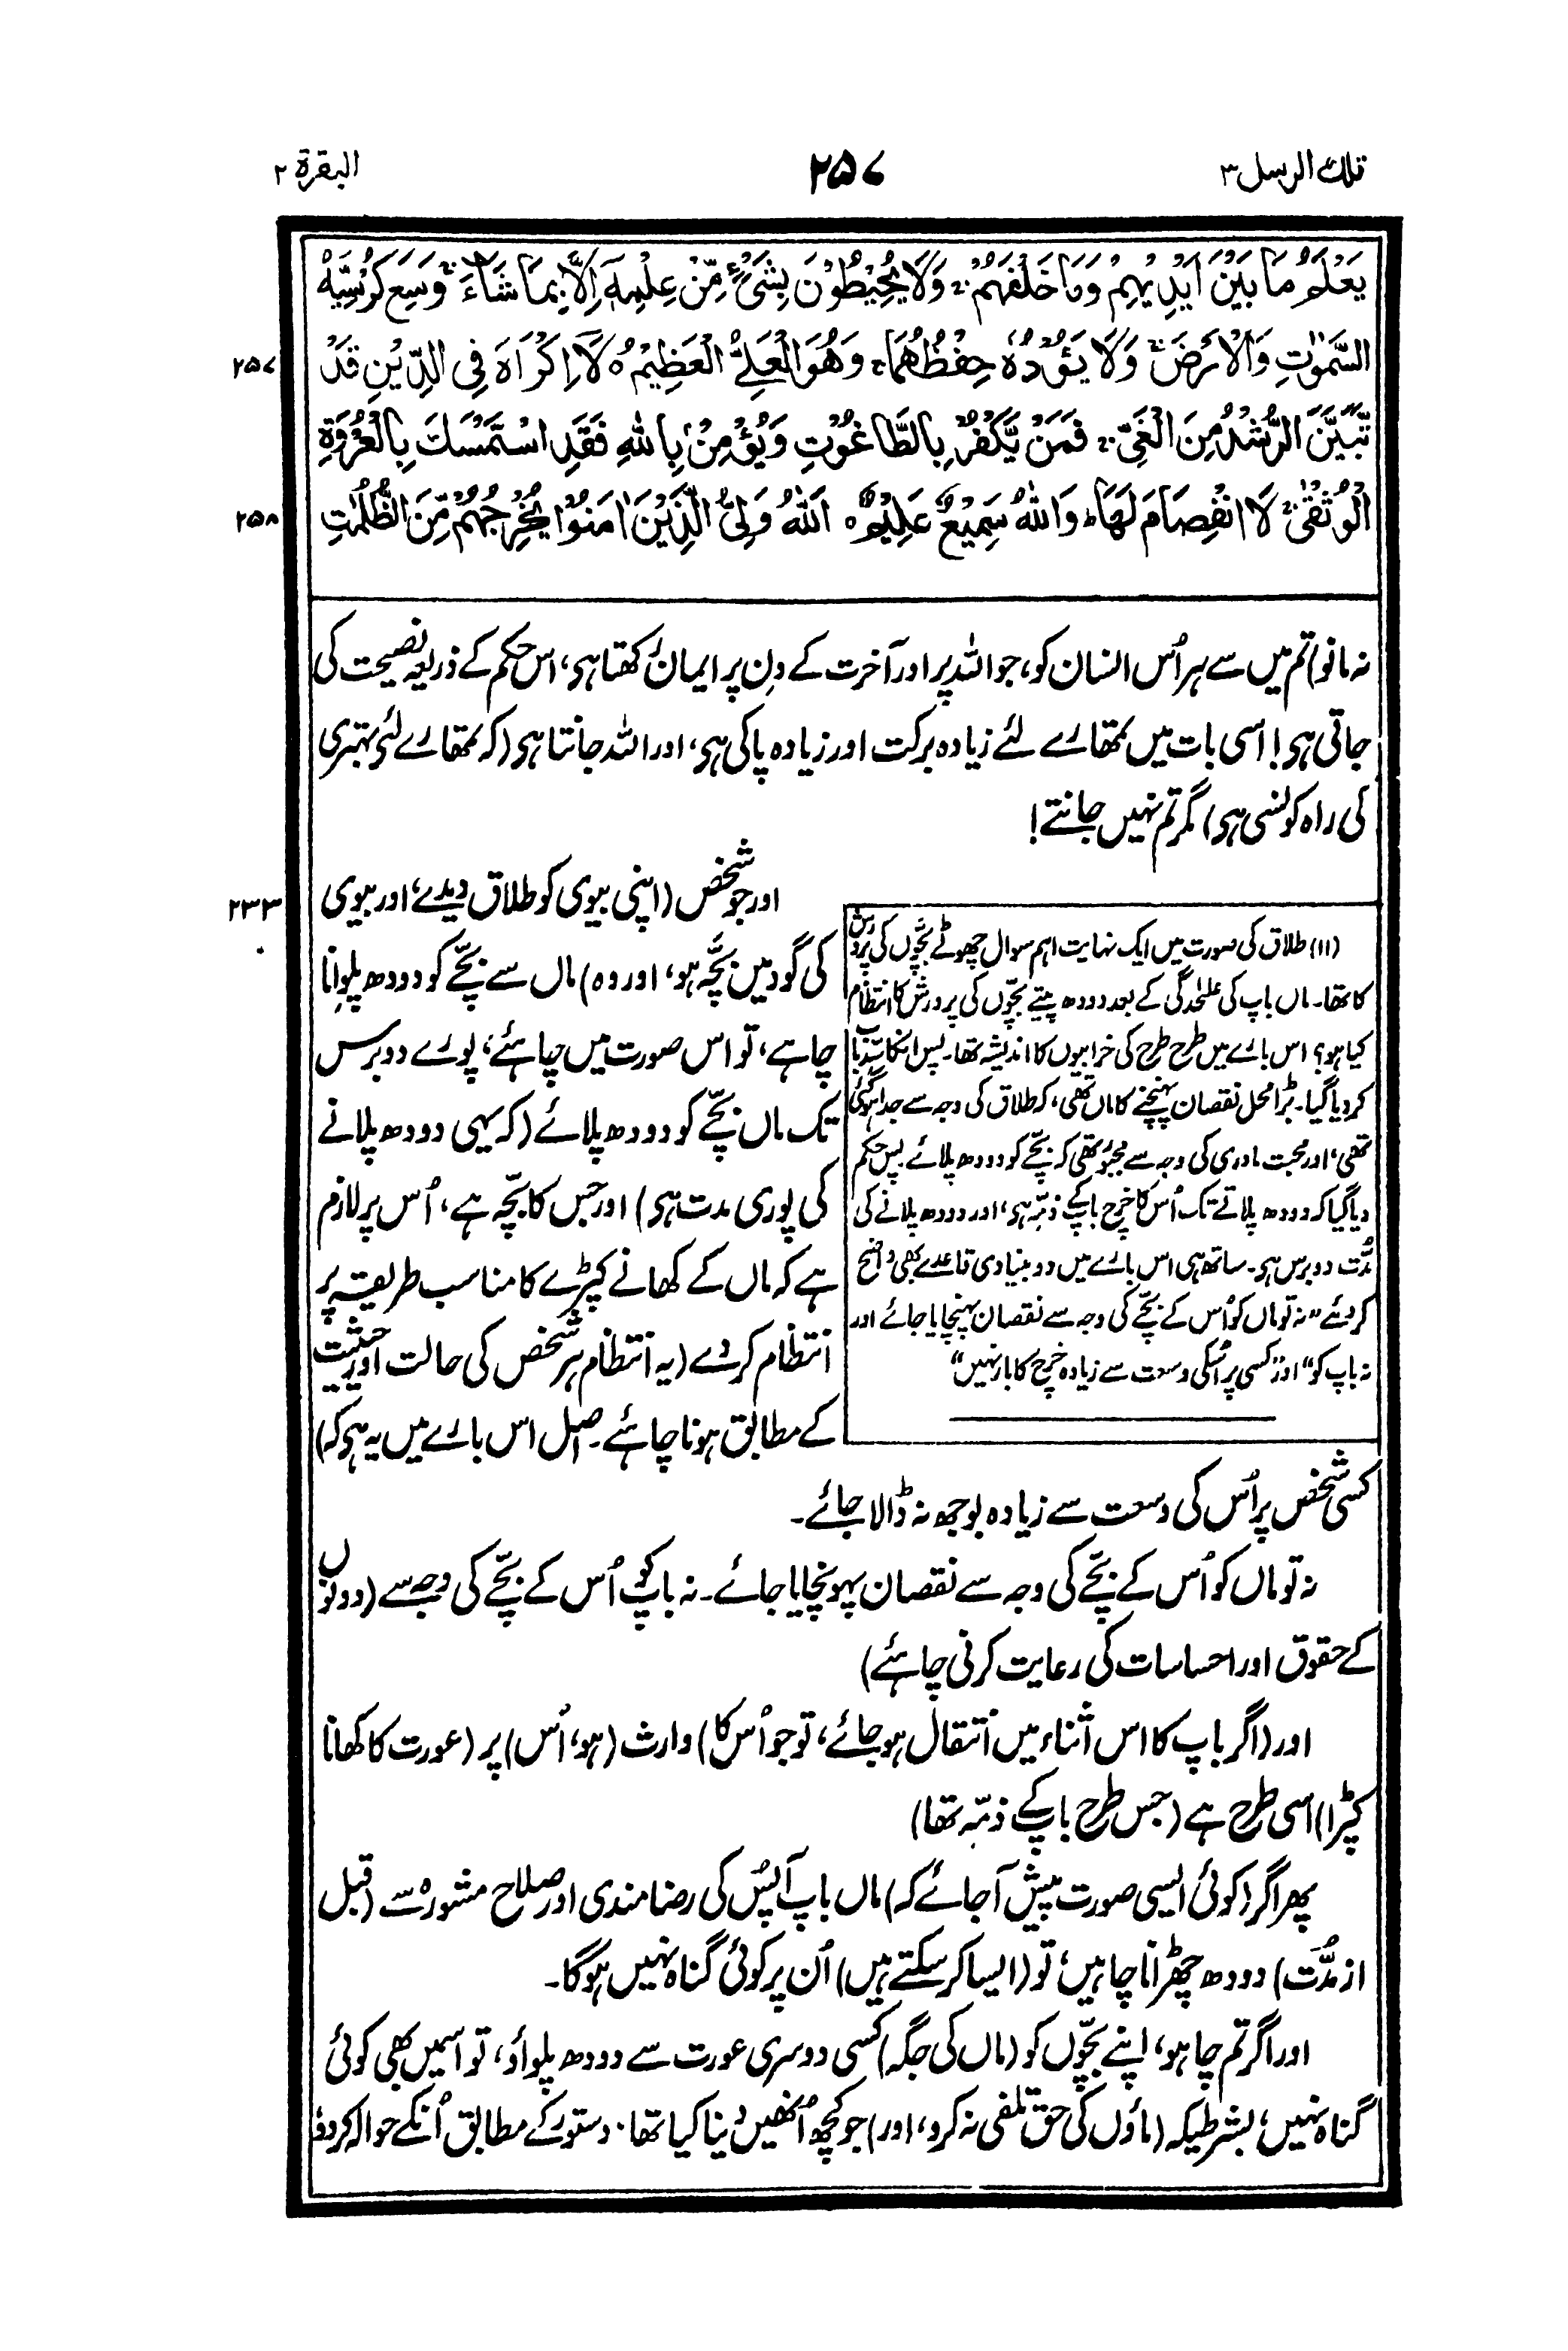 تلك الرسل ۳
۲۵۷
البقرة ۲
يَعْلَمُ مَا بَيْنَ اَيْدِيْهِمْ وَمَا خَلْفَهُمْ ۚ وَلَا يُحِيْطُوْنَ بِشَىْءٍ مِّنْ عِلْمِهٖٓ اِلَّا بِمَا شَآءَ ۚ وَسِعَ كُرْسِيُّهُ
السَّمٰوٰتِ وَالْاَرْضَ ۚ وَلَا يَـُٔوْدُهٗ حِفْظُهُمَا ۚ وَهُوَ الْعَلِىُّ الْعَظِيْمُ ہ لَآ اِكْرَاهَ فِى الدِّيْنِ قَدْ
۲۵۷
تَّبَيَّنَ الرُّشْدُ مِنَ الْغَىِّ ۚ فَمَنْ يَّكْفُرْ بِالطَّاغُوْتِ وَيُؤْمِنْۢ بِاللّٰهِ فَقَدِ اسْتَمْسَكَ بِالْعُرْوَةِ
الْوُثْقٰى ۚ لَا انْفِصَامَ لَهَا ؕ وَاللّٰهُ سَمِيْعٌ عَلِيْمٌ ہ اَللّٰهُ وَلِىُّ الَّذِيْنَ اٰمَنُوْا يُخْرِجُهُمْ مِّنَ الظُّلُمٰتِ
۲۵۸
نہ مانو) تم میں سے ہر اُس انسان کو، جو اللہ پر اور آخرت کے دن پر ایمان رکھتا ہی، اس حکم کے ذریعہ نصیحت کی
جاتی ہی! اسی بات میں تمھارے لئے زیادہ برکت اور زیادہ پاکی ہی، اور اللہ جانتا ہی (کہ تمھارے لئے بہتری
کی راہ کونسی ہی) مگر تم نہیں جانتے!
اور جو شخص (اپنی بیوی کو طلاق دیدے، اور بیوی
۲۳۳
کی گود میں بچّہ ہو، اور وہ) ماں سے بچّے کو دودھ پلوانا
چاہے، تو اس صورت میں چاہئے، پورے دو برس
تک ماں بچّے کو دودھ پلائے (کہ یہی دودھ پلانے
کی پوری مدت ہی) اور جس کا بچّہ ہے، اُس پر لازم
ہے کہ ماں کے کھانے کپڑے کا مناسب طریقہ پر
انتظام کردے (یہ انتظام ہر شخص کی حالت اور حیثیت
کے مطابق ہونا چاہئے۔ اصل اس بارے میں یہ ہی کہ)
(۱۱) طلاق کی صورت میں ایک نہایت اہم سوال چھوٹے بچّوں کی پرورش
کا تھا۔ ماں باپ کی علٰحدگی کے بعد دودھ پیتے بچّوں کی پرورش کا انتظام
کیا ہو؟ اس بارے میں طرح طرح کی خرابیوں کا اندیشہ تھا۔ پس انکا سدّباب
کر دیا گیا۔ بڑا محل نقصان پہنچنے کا ماں تھی، کہ طلاق کی وجہ سے جدا ہوگئی
تھی، اور محبت مادری کی وجہ سے مجبور تھی کہ بچّے کو دودھ پلائے پس حکم
دیا گیا کہ دودھ پلانے تک اُس کا خرچ باپ کے ذمّہ ہی، اور دودھ پلانے کی
مُدّت دو برس ہی۔ ساتھ ہی اس بارے میں دو بنیادی قاعدے بھی واضح
کر دئے "نہ تو ماں کو اُس کے بچّے کی وجہ سے نقصان پہنچایا جائے اور
نہ باپ کو" اور "کسی پر اُسکی وسعت سے زیادہ خرچ کا بار نہیں"
کسی شخص پر اُس کی وسعت سے زیادہ بوجھ نہ ڈالا جائے۔
نہ تو ماں کو اُس کے بچّے کی وجہ سے نقصان پہونچایا جائے۔ نہ باپ کو اُس کے بچّے کی وجہ سے (دونوں
کے حقوق اور احساسات کی رعایت کرنی چاہئے)
اور (اگر باپ کا اس اثناء میں اُنتقال ہو جائے، تو جو اُس کا) وارث (ہو، اُس) پر (عورت کا کھانا
کپڑا) اسی طرح ہے (جس طرح باپ کے ذمّہ تھا)
پھر اگر (کوئی ایسی صورت پیش آجائے کہ) ماں باپ آپس کی رضامندی اور صلاح مشورہ سے (قبل
از مُدّت) دودھ چھڑانا چاہیں، تو (ایسا کر سکتے ہیں) اُن پر کوئی گناہ نہیں ہوگا۔
اور اگر تم چاہو، اپنے بچّوں کو (ماں کی جگہ) کسی دوسری عورت سے دودھ پلواؤ، تو اسمیں بھی کوئی
گناہ نہیں، بشرطیکہ (ماؤں کی حق تلفی نہ کرو، اور) جو کچھ اُنھیں دینا کیا تھا۔ دستور کے مطابق اُنکے حوالہ کر دو،